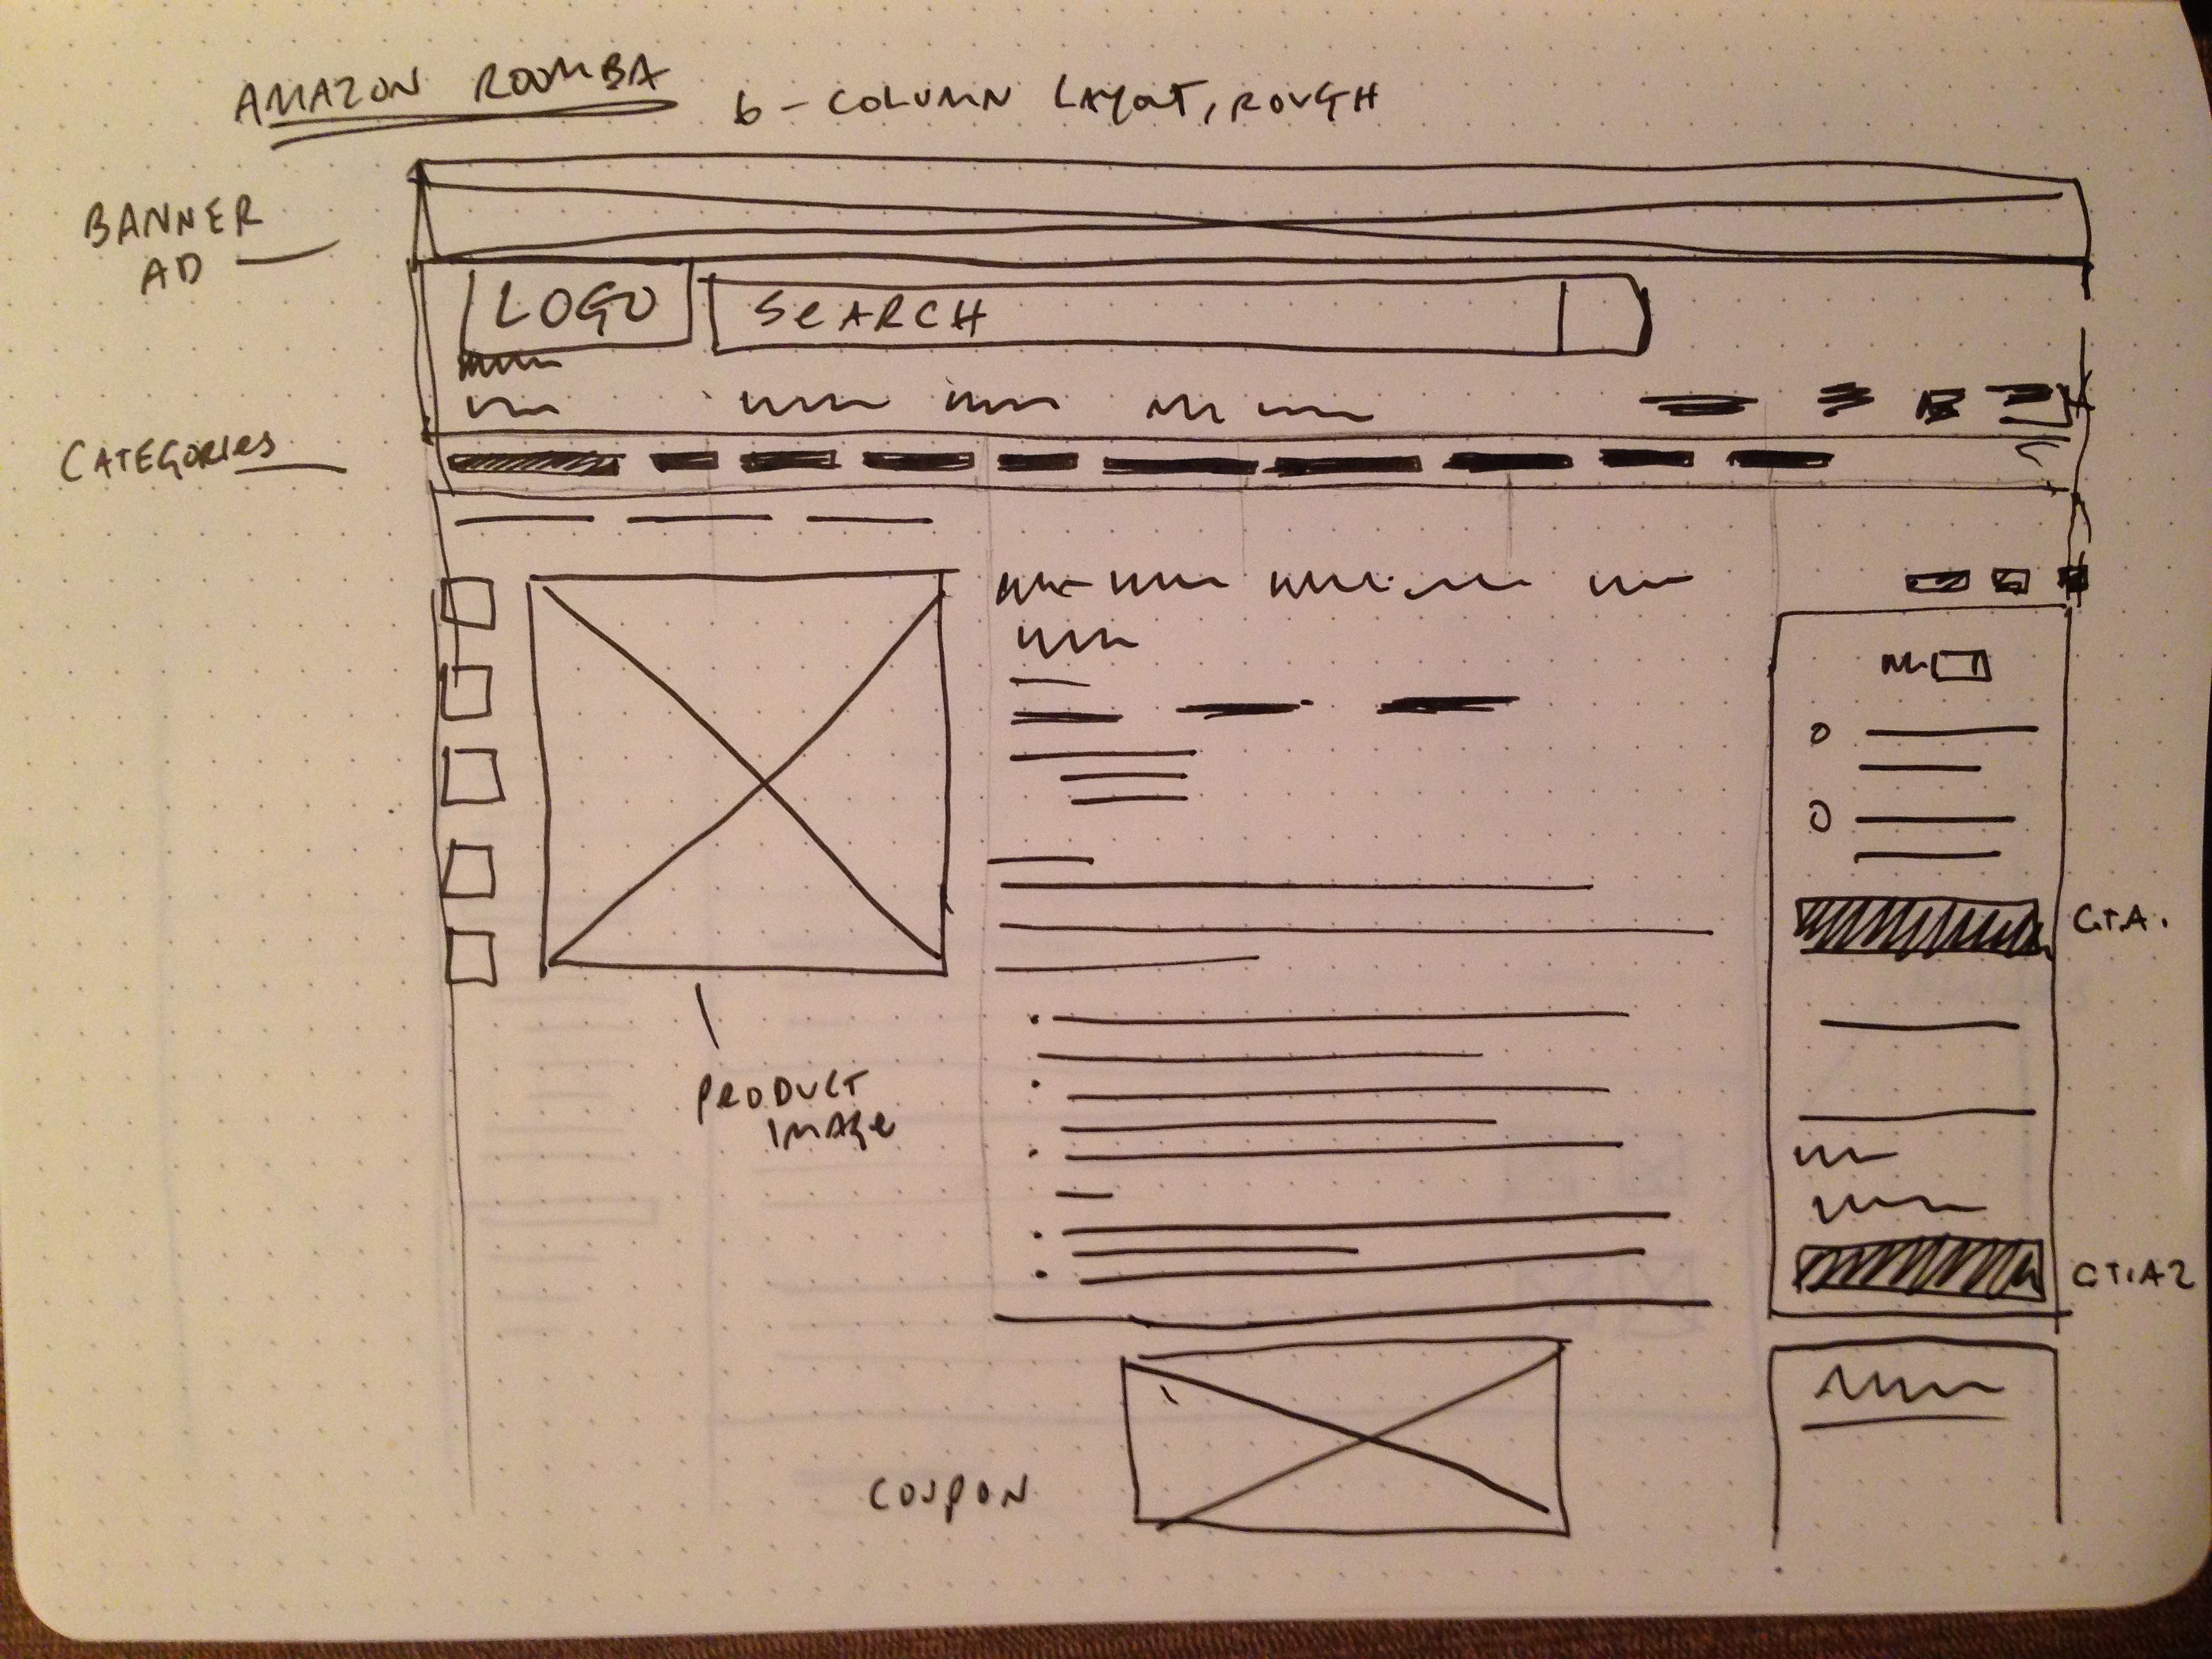 AMAZON ROOMBA 6-COLUMN LAYOUT, ROUGH
BANNER
AD
LOGO
SEARCH
CATEGORIES
CTA.
PRODUCT
IMAGE
CTA2
COUPON